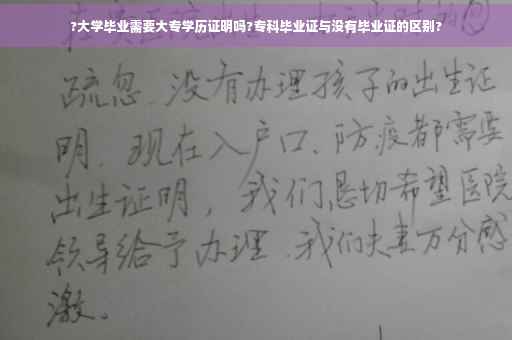 ?大学毕业需要大专学历证明吗?专科毕业证与没有毕业证的区别?
疏忽、没有办理孩子的出生证
明、现在入户口、防疫都需要
出生证明，我们恳切希望医院
领导给予办理、我们夫妻万分感
激。